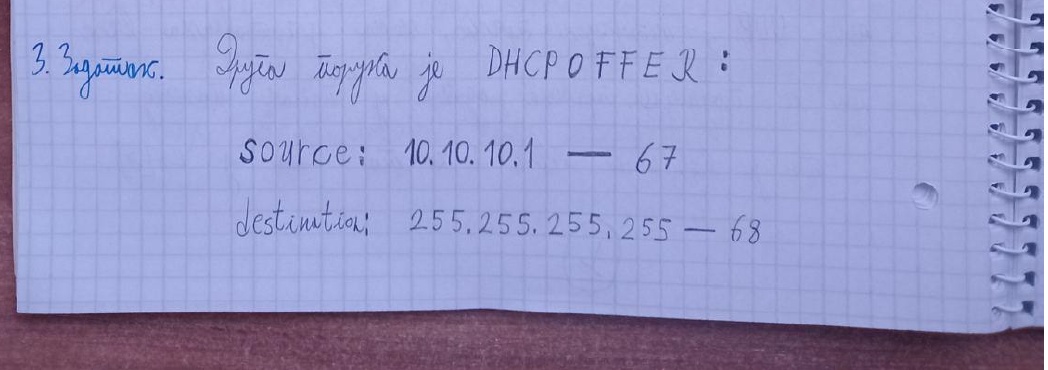 3. Задатак. Друга порука је DHCPOFFER:
source: 10.10.10.1 — 67
destination: 255.255.255.255 — 68